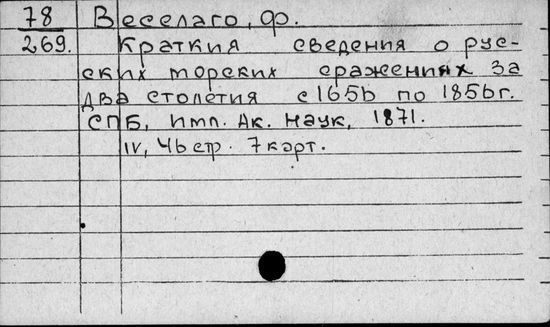 78 Веселаго, Ф.
269. Краткия сведения о рус-
ских морских сражениях за
два столетия с 1656 по 1856 г.
СПБ, Имп. Ак. Наук, 1871.
IV, 46 стр. 7 карт.